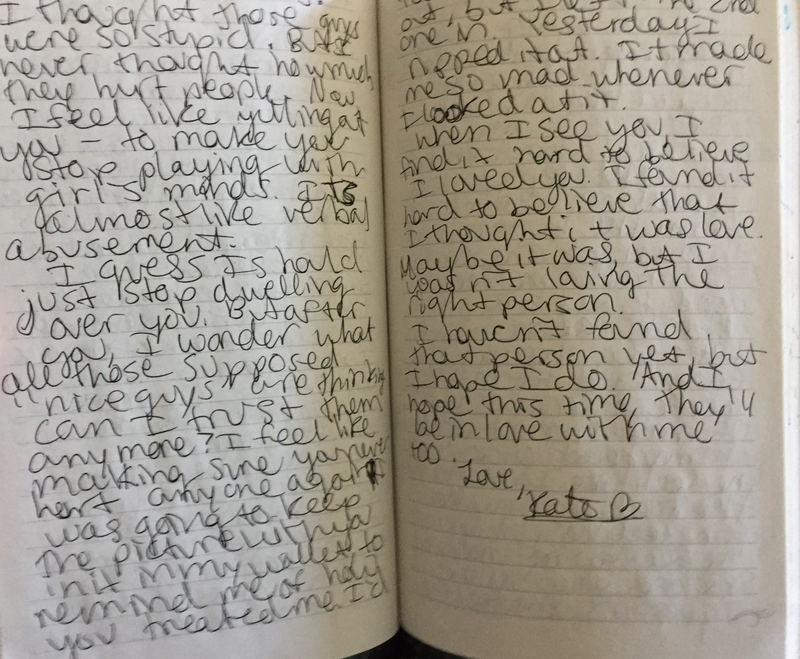 I thought those guys
were so stupid. But I
never thought how much
they hurt people. Now
I feel like yelling at
you – to make you
stop playing with
girl's minds. It's
almost like verbal
abusement.
I guess I should
just stop dwelling
over you. But after
you, I wonder what
all those supposed
"nice guys" are thinking
can I trust them
anymore? I feel like
making sure you never
hurt anyone again. I
was going to keep
the picture with ya
in it in my wallet to
remind me of how
you treated me. I'd
out, but I 2nd
one in. Yesterday I
ripped it out. It made
me so mad whenever
I looked at it.
When I see you, I
find it hard to believe
I loved you. I find it
hard to believe that
I thought it was love.
Maybe it was, but I
wasn't loving the
right person.
I haven't found
that person yet, but
I hope I do. And I
hope this time, they'll
be in love with me
too.
Love,
Kate B